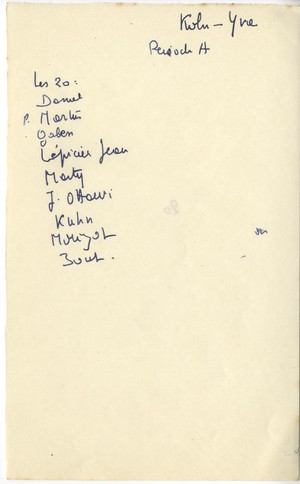 Kuhn - Yve
Periode A
Les 20:
Daniel
P. Martin
Gaben
Lépicier Jean
Marty
J. Ottavi
Kuhn
Morizot
Bout.